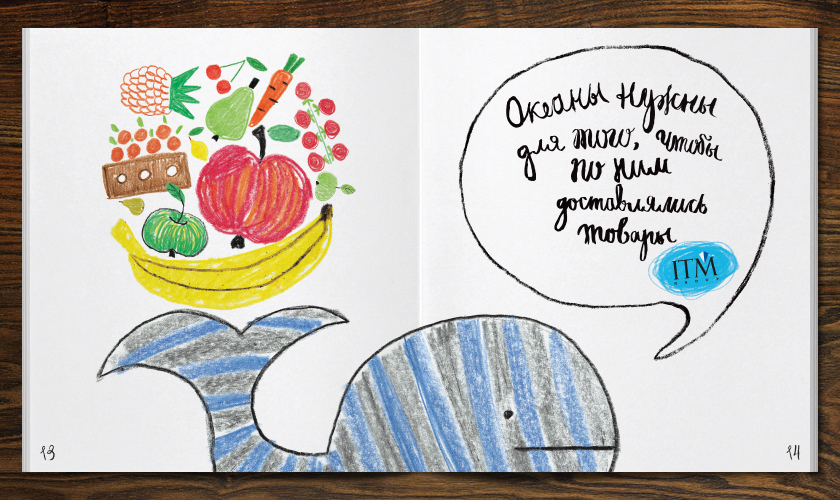 Океаны нужны
для того, чтобы
по ним
доставлялись
товары
ITM
GROUP
13
14